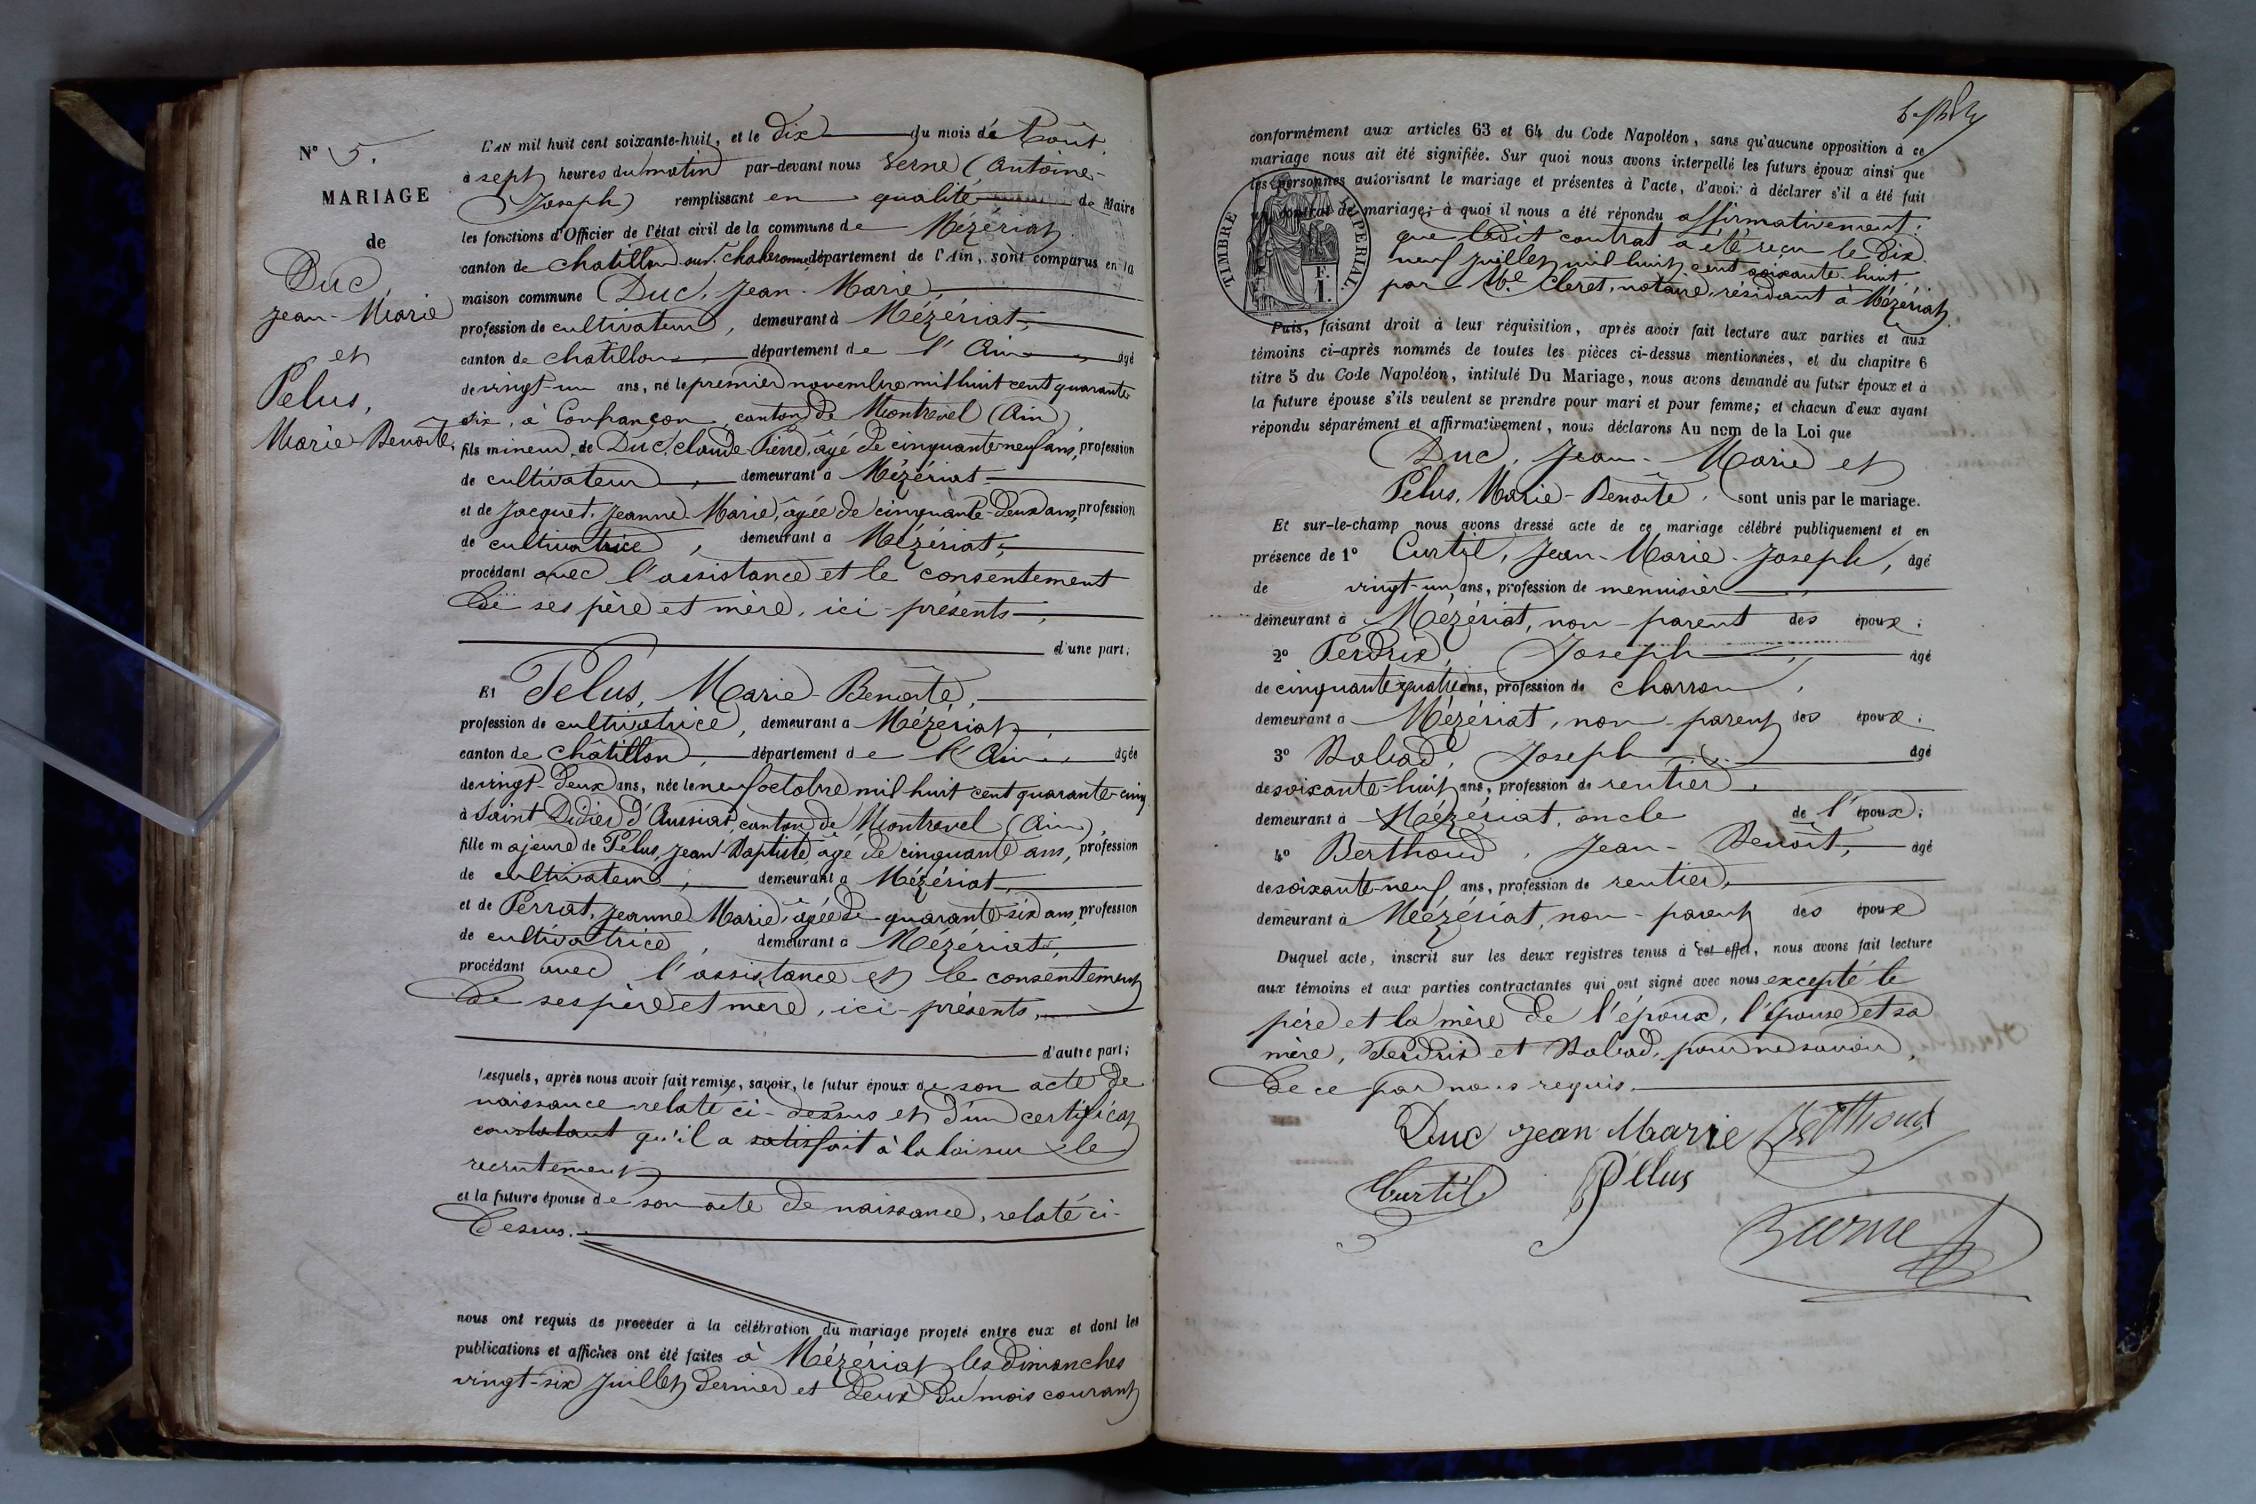 N° 5.
MARIAGE
de
Duc,
Jean-Marie
et
Pelus,
Marie Benoite.
L'AN mil huit cent soixante-huit, et le dix du mois de Août.
à sept heures du matin par-devant nous Verne (Antoine-
Joseph) remplissant en qualité de Maire
les fonctions d'Officier de l'état civil de la commune de Mézériat
canton de Chatillon sur Chalaronne département de l'Ain, sont comparus en la
maison commune Duc, Jean-Marie,
profession de cultivateur, demeurant à Mézériat,
canton de Châtillon département de l'Ain âgé
de vingt-un ans, né le premier novembre mil huit cent quarante
six, à Confrançon, canton de Montrevel (Ain),
fils mineur de Duc, Claude Pierre, âgé de cinquante-neuf ans, profession
de cultivateur, demeurant à Mézériat
et de Jacquet, Jeanne-Marie, âgée de cinquante-deux ans, profession
de cultivatrice, demeurant à Mézériat,
procédant avec l'assistance et le consentement
de ses père et mère, ici-présents,
d'une part;
Et Pelus, Marie-Benoite,
profession de cultivatrice, demeurant à Mézériat,
canton de Châtillon, département de l'Ain, âgée
de vingt-deux ans, née le neuf octobre mil huit cent quarante-cinq
à Saint Didier d'Aussiat, canton de Montrevel (Ain),
fille majeure de Pelus, Jean-Baptiste, âgé de cinquante ans, profession
de cultivateur, demeurant à Mézériat,
et de Perrat, Jeanne-Marie, âgée de quarante-six ans, profession
de cultivatrice, demeurant à Mézériat,
procédant avec l'assistance et le consentement
de ses père et mère, ici-présents,
d'autre part;
Lesquels, après nous avoir fait remise, savoir, le futur époux de son acte de
naissance relaté ci-dessus et d'un certificat
constatant qu'il a satisfait à la loi sur le
recrutement
et la future épouse de son acte de naissance, relaté ci-
dessus.
nous ont requis de procéder à la célébration du mariage projeté entre eux et dont les
publications et affiches ont été faites à Mézériat les dimanches
vingt-six juillet dernier et deux du mois courant
conformément aux articles 63 et 64 du Code Napoléon, sans qu'aucune opposition à ce
mariage nous ait été signifiée. Sur quoi nous avons interpellé les futurs époux ainsi que
les personnes autorisant le mariage et présentes à l'acte, d'avoir à déclarer s'il a été fait
un contrat de mariage; à quoi il nous a été répondu affirmativement:
que ledit contrat a été reçu le dix
neuf juillet mil huit cent soixante-huit
par Me Cleret, notaire, résidant à Mézériat.
TIMBRE IMPERIAL.
F.
I.
Puis, faisant droit à leur réquisition, après avoir fait lecture aux parties et aux
témoins ci-après nommés de toutes les pièces ci-dessus mentionnées, et du chapitre 6
titre 5 du Code Napoléon, intitulé Du Mariage, nous avons demandé au futur époux et à
la future épouse s'ils veulent se prendre pour mari et pour femme; et chacun d'eux ayant
répondu séparément et affirmativement, nous déclarons Au nom de la Loi que
Duc, Jean-Marie et
Pelus, Marie-Benoite, sont unis par le mariage.
Et sur-le-champ nous avons dressé acte de ce mariage célébré publiquement et en
présence de 1° Curtil, Jean-Marie-Joseph, âgé
de vingt-un ans, profession de menuisier,
demeurant à Mézériat, non-parent des époux;
2° Perdrix, Joseph, âgé
de cinquante quatre ans, profession de charron,
demeurant à Mézériat, non-parent des époux;
3° Robad, Joseph, âgé
de soixante-huit ans, profession de rentier,
demeurant à Mézériat, oncle de l'époux;
4° Berthoud, Jean-Benoit, âgé
de soixante-neuf ans, profession de rentier,
demeurant à Mézériat, non-parent des époux
Duquel acte, inscrit sur les deux registres tenus à cet effet, nous avons fait lecture
aux témoins et aux parties contractantes qui ont signé avec nous excepté le
père et la mère de l'époux, l'épouse et sa
mère, Perdrix et Robad, pour ne savoir,
de ce par nous requis.
Duc Jean Marie Berthoud
Curtil Pelus
Verne